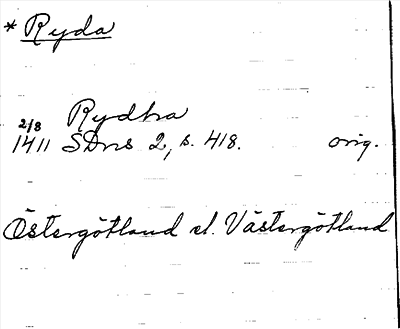 * Ryda
Rydha
2/8
1411 SDns 2, s. 418. orig.
Östergötland el. Västergötland